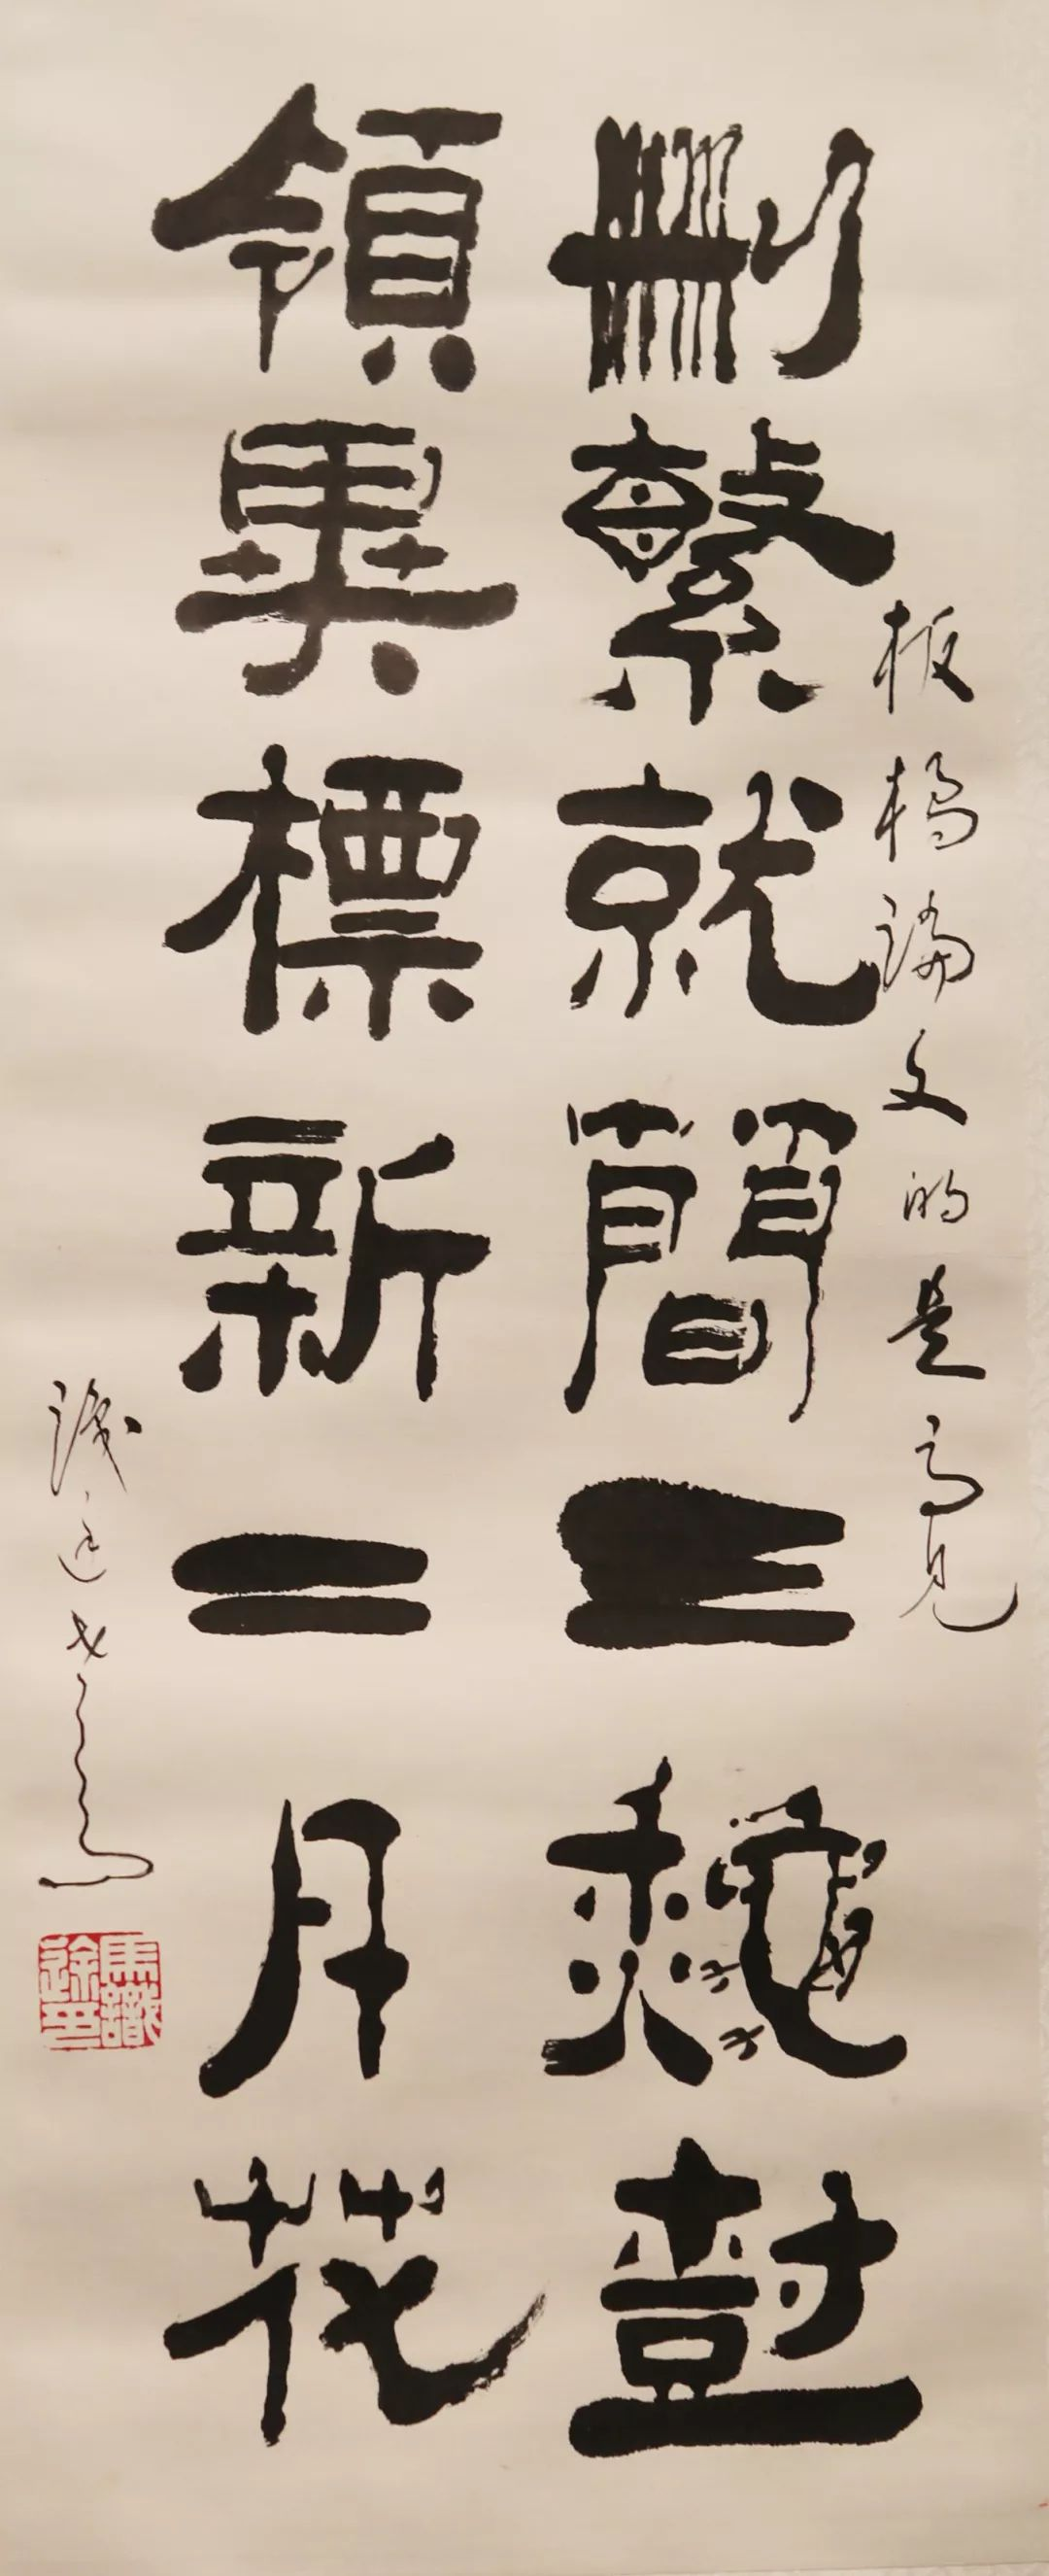 刪繁就簡三秋樹
領異標新二月花
板橋論文的是高見
識途老馬
馬識途印